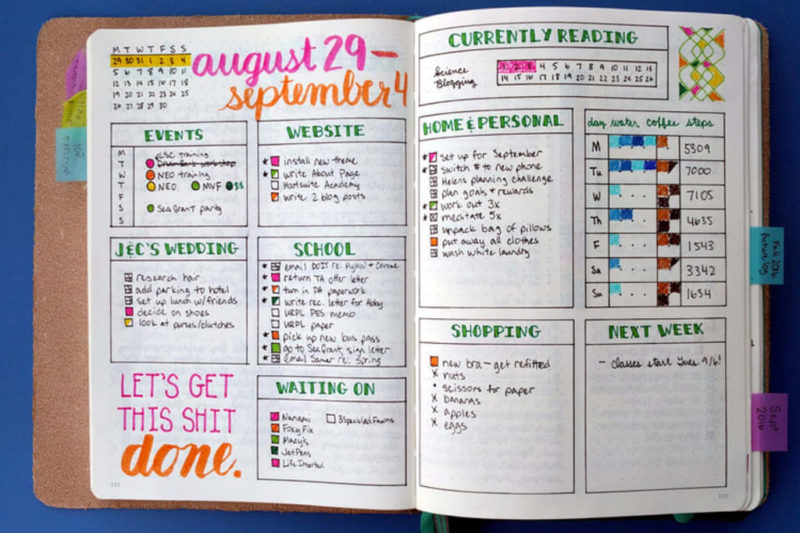 M T W T F S S
29 30 31 1 2 3 4
5 6 7 8 9 10 11
12 13 14 15 16 17 18
19 20 21 22 23 24 25
26 27 28 29 30
august 29 -
september 4
EVENTS
M
T
W
T
F
S
S
training
NEO training
NEO MVF $$
Sea Grant party
WEBSITE
install new theme
write About Page
Hootsuite Academy
write 2 blog posts
J&C'S WEDDING
research hair
add parking to hotel
set up lunch w/friends
decide on shoes
look at purses/clutches
SCHOOL
email DOIT re:
return TA offer letter
turn in DA paperwork
write rec. letter for
URPL PES memo
URPL paper
pick up new bus pass
go to Sea Grant, sign letter
email re: Spring
LET'S GET
THIS SHIT
done.
WAITING ON
Nanami
Foxy Fix
Macy's
JetPens
Life
112
CURRENTLY READING
Science
Blogging
1 2 3 4 5 6 7 8 9 10 11 12 13
14 15 16 17 18 19 20 21 22 23 24 25 26
HOME & PERSONAL
set up for September
switch # to new phone
Helen's planning challenge
plan goals + rewards
work out 3x
meditate 5x
unpack bag of pillows
put away all clothes
wash white laundry
day water coffee steps
M 5309
Tu 7000
W 7105
Th 4635
F 1543
Sa 3342
Su 1634
SHOPPING
new bra - get refitted
x nuts
• scissors for paper
x bananas
x apples
x eggs
NEXT WEEK
- classes start Tues 9/6!
113
Fall 2016
future log
Sept
2016